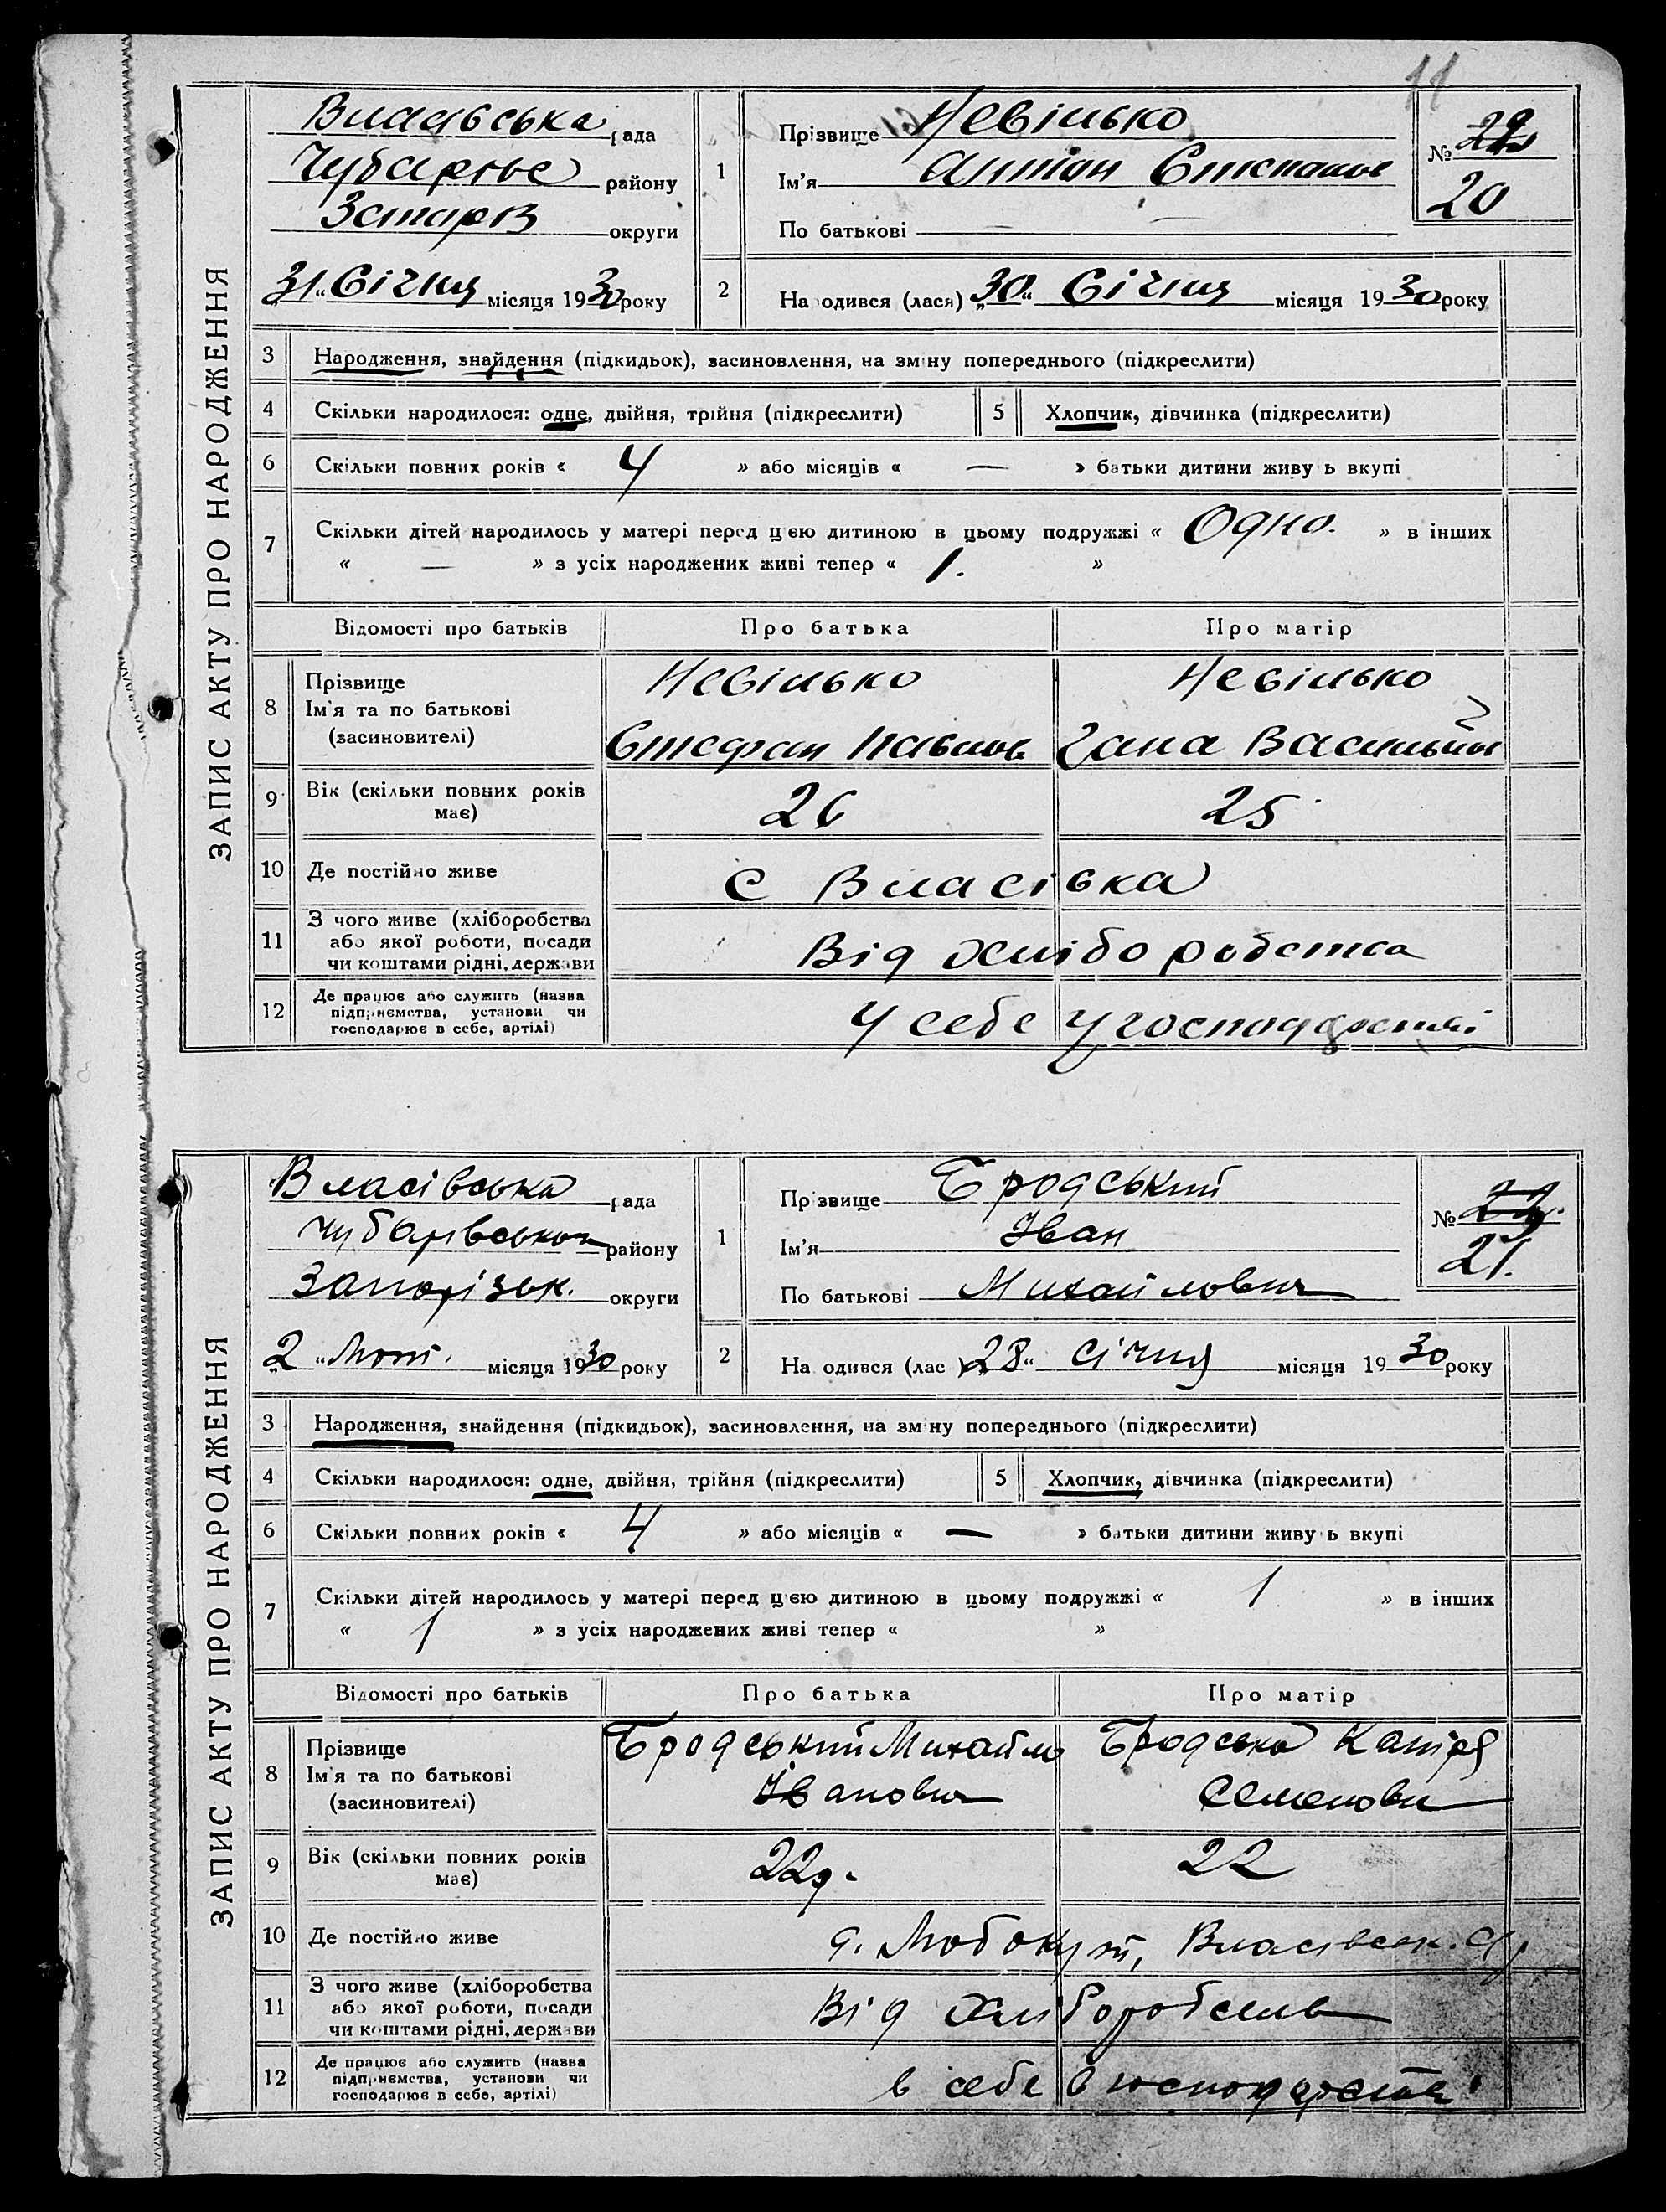 11
ЗАПИС АКТУ ПРО НАРОДЖЕННЯ
Власівська рада
району
округи
„31“ Січня місяця 1930 року
1
Прізвище Невілько
Ім'я Антон Степанов
По батькові —
№
20
2
Народився (лася) „30“ Січня місяця 1930 року
3 Народження, знайдення (підкидьок), засиновлення, на зміну попереднього (підкреслити)
4 Скільки народилося: одне, двійня, трійня (підкреслити) 5 Хлопчик, дівчинка (підкреслити)
6 Скільки повних років « 4 » або місяців « — » батьки дитини живуть вкупі
7 Скільки дітей народилось у матері перед цією дитиною в цьому подружжі « Одно. » в інших
« — » з усіх народжених живі тепер « 1. »
Відомості про батьків Про батька Про матір
8 Прізвище
Ім'я та по батькові
(засиновителі)
Невілько Невілько
Стефан Павлов Гана Васильїв
9 Вік (скільки повних років має) 26 25
10 Де постійно живе с Власівка
11 З чого живе (хліборобства
або якої роботи, посади
чи коштами рідні, держави
Від хліборобства
12 Де працює або служить (назва
підприємства, установи чи
господарює в себе, артілі)
У себе у господарстві
ЗАПИС АКТУ ПРО НАРОДЖЕННЯ
Власівська рада
Чубарівського району
Запорізьк. округи
„2“ Лют. місяця 1930 року
1
Прізвище Бродський
Ім'я Іван
По батькові Михайлович
№
21.
2
Народився (лася) „28“ січня місяця 1930 року
3 Народження, знайдення (підкидьок), засиновлення, на зміну попереднього (підкреслити)
4 Скільки народилося: одне, двійня, трійня (підкреслити) 5 Хлопчик, дівчинка (підкреслити)
6 Скільки повних років « 4 » або місяців « — » батьки дитини живуть вкупі
7 Скільки дітей народилось у матері перед цією дитиною в цьому подружжі « 1 » в інших
« 1 » з усіх народжених живі тепер « »
Відомості про батьків Про батька Про матір
8 Прізвище
Ім'я та по батькові
(засиновителі)
Бродський Михайло Бродська
Іванович Семенов
9 Вік (скільки повних років має) 22 22
10 Де постійно живе Любокут, Власівськ.
11 З чого живе (хліборобства
або якої роботи, посади
чи коштами рідні, держави
Від хліборобства
12 Де працює або служить (назва
підприємства, установи чи
господарює в себе, артілі)
в себе в господарстві